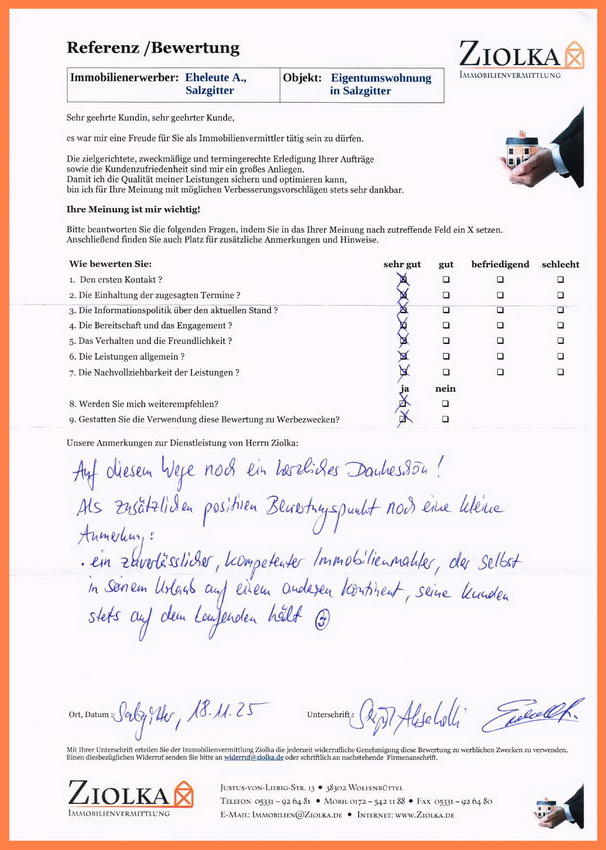 Referenz /Bewertung
ZIOLKA
IMMOBILIENVERMITTLUNG
Immobilienerwerber: Eheleute A., Salzgitter
Objekt: Eigentumswohnung in Salzgitter
Sehr geehrte Kundin, sehr geehrter Kunde,
es war mir eine Freude für Sie als Immobilienvermittler tätig sein zu dürfen.
Die zielgerichtete, zweckmäßige und termingerechte Erledigung Ihrer Aufträge
sowie die Kundenzufriedenheit sind mir ein großes Anliegen.
Damit ich die Qualität meiner Leistungen sichern und optimieren kann,
bin ich für Ihre Meinung mit möglichen Verbesserungsvorschlägen stets sehr dankbar.
Ihre Meinung ist mir wichtig!
Bitte beantworten Sie die folgenden Fragen, indem Sie in das Ihrer Meinung nach zutreffende Feld ein X setzen.
Anschließend finden Sie auch Platz für zusätzliche Anmerkungen und Hinweise.
Wie bewerten Sie: sehr gut gut befriedigend schlecht
1. Den ersten Kontakt ?
2. Die Einhaltung der zugesagten Termine ?
3. Die Informationspolitik über den aktuellen Stand ?
4. Die Bereitschaft und das Engagement ?
5. Das Verhalten und die Freundlichkeit ?
6. Die Leistungen allgemein ?
7. Die Nachvollziehbarkeit der Leistungen ?
ja nein
8. Werden Sie mich weiterempfehlen?
9. Gestatten Sie die Verwendung diese Bewertung zu Werbezwecken?
Unsere Anmerkungen zur Dienstleistung von Herrn Ziolka:
Auf diesem Wege noch ein herzliches Dankeschön!
Als zusätzlichen positiven Bewertungspunkt noch eine kleine
Anmerkung:
· ein zuverlässlicher, kompetenter Immobilienmakler, der selbst
in seinem Urlaub auf einem anderen Kontinent, seine Kunden
stets auf dem Laufenden hält
Ort, Datum : Salzgitter, 18.11.25 Unterschrift :
Mit Ihrer Unterschrift erteilen Sie der Immobilienvermittlung Ziolka die jederzeit widerrufliche Genehmigung diese Bewertung zu werblichen Zwecken zu verwenden.
Einen diesbezüglichen Widerruf senden Sie bitte an widerruf@ziolka.de oder schriftlich an nachstehende Firmenanschrift.
ZIOLKA
IMMOBILIENVERMITTLUNG
JUSTUS-VON-LIEBIG-STR. 13 • 38302 WOLFENBÜTTEL
TELEFON 05331 – 92 64 81 • MOBIL 0172 – 542 11 88 • FAX 05331 – 92 64 80
E-MAIL: IMMOBILIEN@ZIOLKA.DE • INTERNET: WWW.ZIOLKA.DE